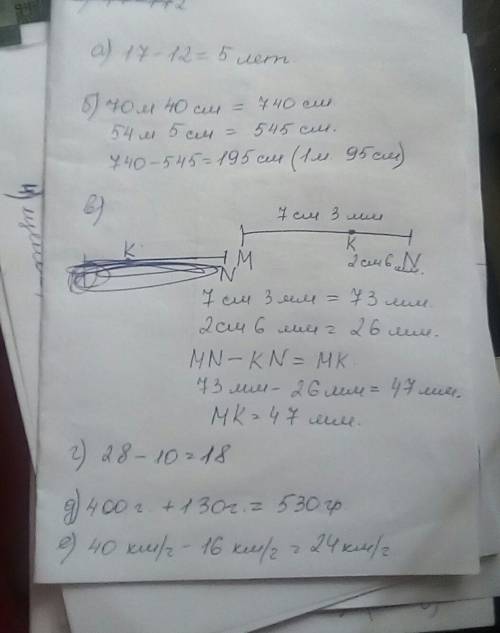 а) 17 - 12 = 5 лет.
б) 70 м 40 см = 740 см.
54 м 5 см = 545 см.
740 - 545 = 195 см (1 м. 95 см)
в)
7 см 3 мм
K
N
M
K
2 см 6 мм.
N
7 см 3 мм = 73 мм.
2 см 6 мм = 26 мм.
MN - KN = MK
73 мм - 26 мм = 47 мм.
MK = 47 мм.
г) 28 - 10 = 18
д) 400 г. + 130 г. = 530 гр
е) 40 км/г - 16 км/г = 24 км/г